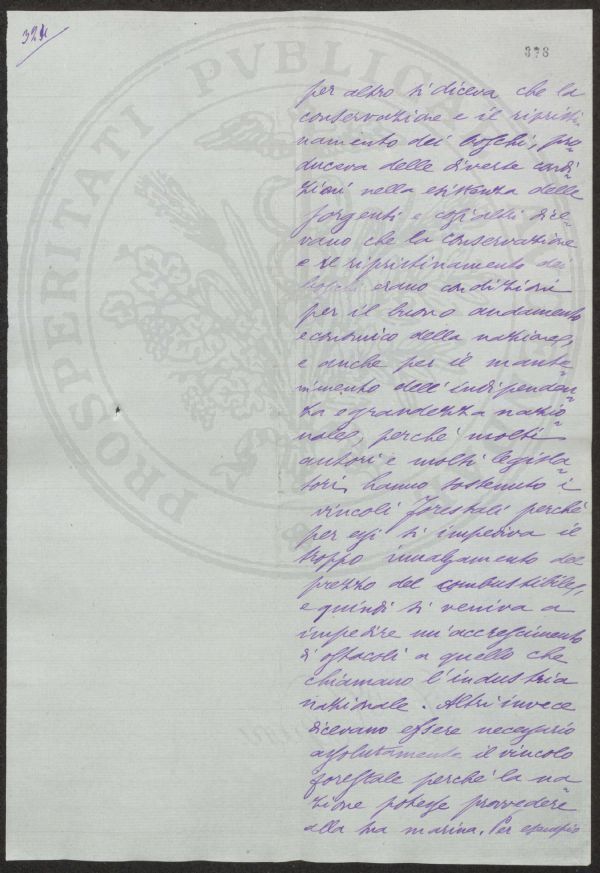 324
378
PROSPERITATI PUBLICAE
per altro si diceva che la
conservazione e il ripristi-
namento dei boschi, pro-
duceva delle diverse condi-
zioni nella esistenza delle
sorgenti e così altri dice-
vano che la conservazione
e il ripristinamento dei
boschi erano condizioni
per il buono andamento
economico della nazione,
e anche per il mante-
nimento dell'indipenden-
za e grandezza nazio-
nale, perchè molti
autori e molti legisla-
tori, hanno sostenuto i
vincoli forestali perchè
per essi si impediva il
troppo innalzamento del
prezzo del combustibile,
e quindi si veniva a
impedire un'accrescimento
d'ostacoli a quello che
chiamano l'industria
nazionale. Altri invece
dicevano essere necessario
assolutamente il vincolo
forestale perchè la na-
zione potesse provvedere
alla sua marina. Per esempio